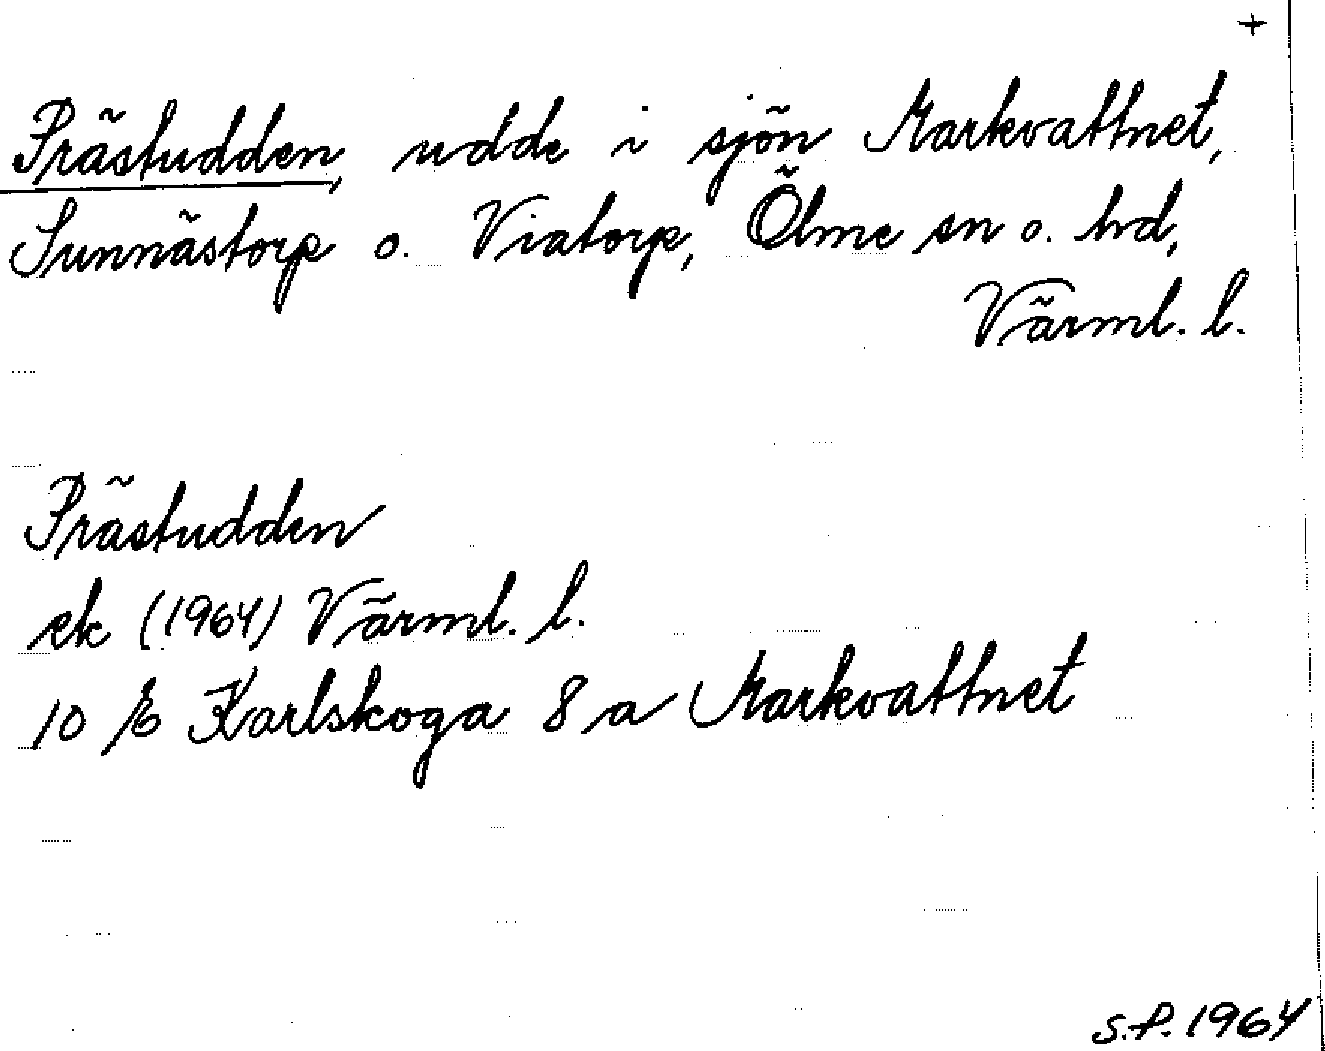 +
Prästudden, udde i sjön Markvattnet,
Sunnästorp o. Viatorp, Ölme sn o. hd,
Värml. l.
Prästudden
ek (1964) Värml. l.
10 E Karlskoga 8 a Markvattnet
S.P. 1964